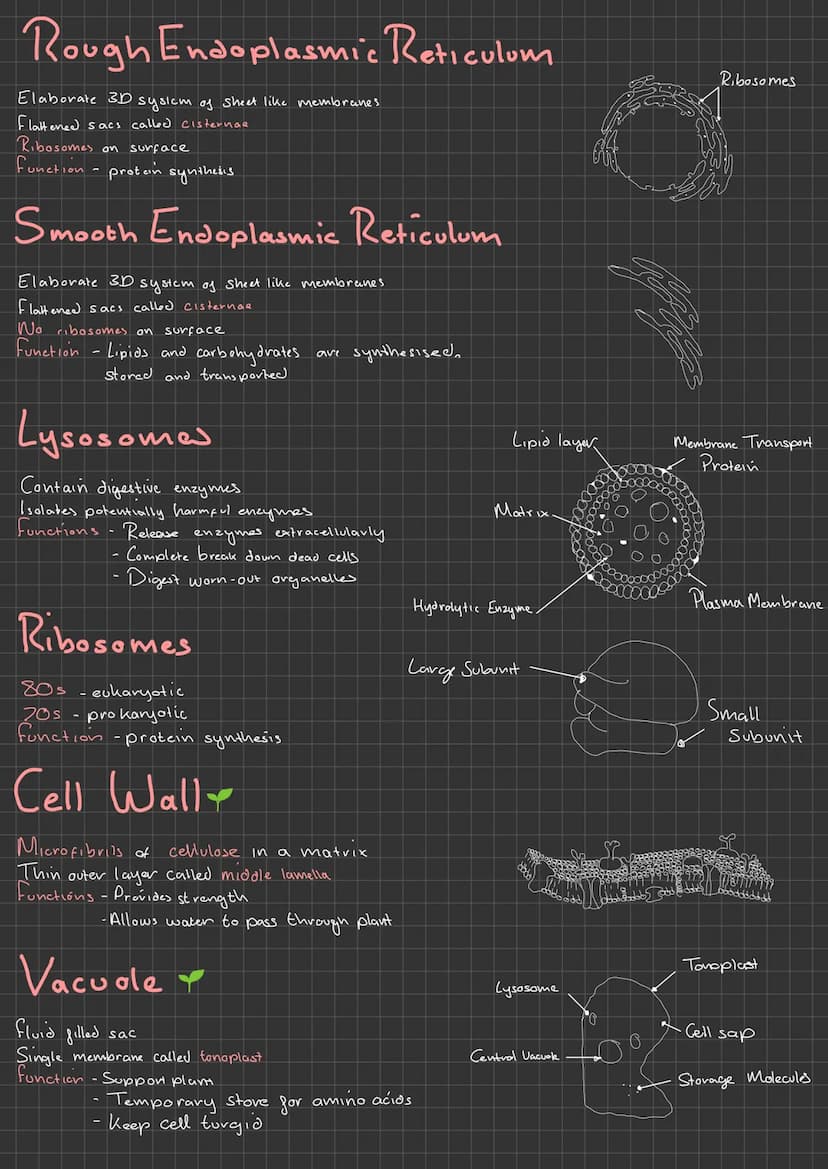 Rough Endoplasmic Reticulum
Ribosomes
Elaborate 3D system of sheet like membranes
Flattened sacs called cisternae
Ribosomes on surface
Function - protein synthesis
Smooth Endoplasmic Reticulum
Elaborate 3D system of sheet like membranes
Flattened sacs called cisternae
No ribosomes on surface
Function - Lipids and carbohydrates are synthesised,
stored and transported
Lysosomes
Lipid layer
Membrane Transport
Protein
Contain digestive enzymes
Isolates potentially harmful enzymes
Matrix
Functions - Release enzymes extracellularly
- Complete break down dead cells
- Digest worn-out organelles
Hydrolytic Enzyme
Plasma Membrane
Ribosomes
Large Subunit
80s - eukaryotic
70s - prokaryotic
Function - protein synthesis
Small
Subunit
Cell Wall
Microfibrils of cellulose in a matrix
Thin outer layer called middle lamella
Functions - Provides strength
- Allows water to pass through plant
Vacuole
Tonoplast
Lysosome
Fluid filled sac
Cell sap
Single membrane called tonoplast
Central Vacuole
Function - Support plant
Storage Molecule
- Temporary store for amino acids
- Keep cell turgid